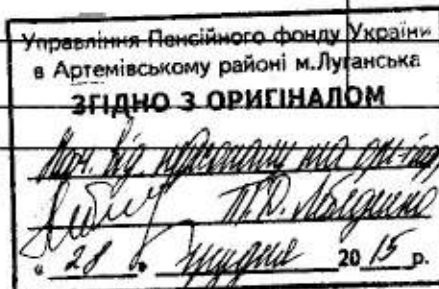 Управління Пенсійного фонду України
в Артемівському районі м.Луганська
ЗГІДНО З ОРИГІНАЛОМ
Нач. від. персоналу та
"28" грудня 2015 р.